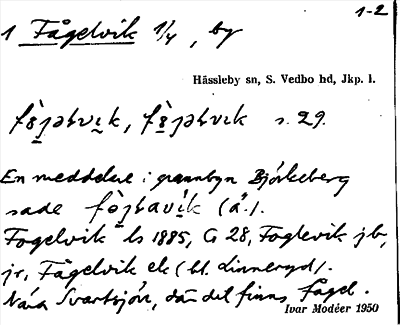 1-2
1 Fågelvik 1/4, by
Hässleby sn, S. Vedbo hd, Jkp. l.
s. 29.
En meddelare i grannbyn Björkeberg
sade (ä.).
Fogelvik ls 1885, G 28, Foglevik jb,
jr, Fågelvik ek (bl. Linneryd).
Nära Svartsjön, där det finns fågel.
Ivar Modéer 1950